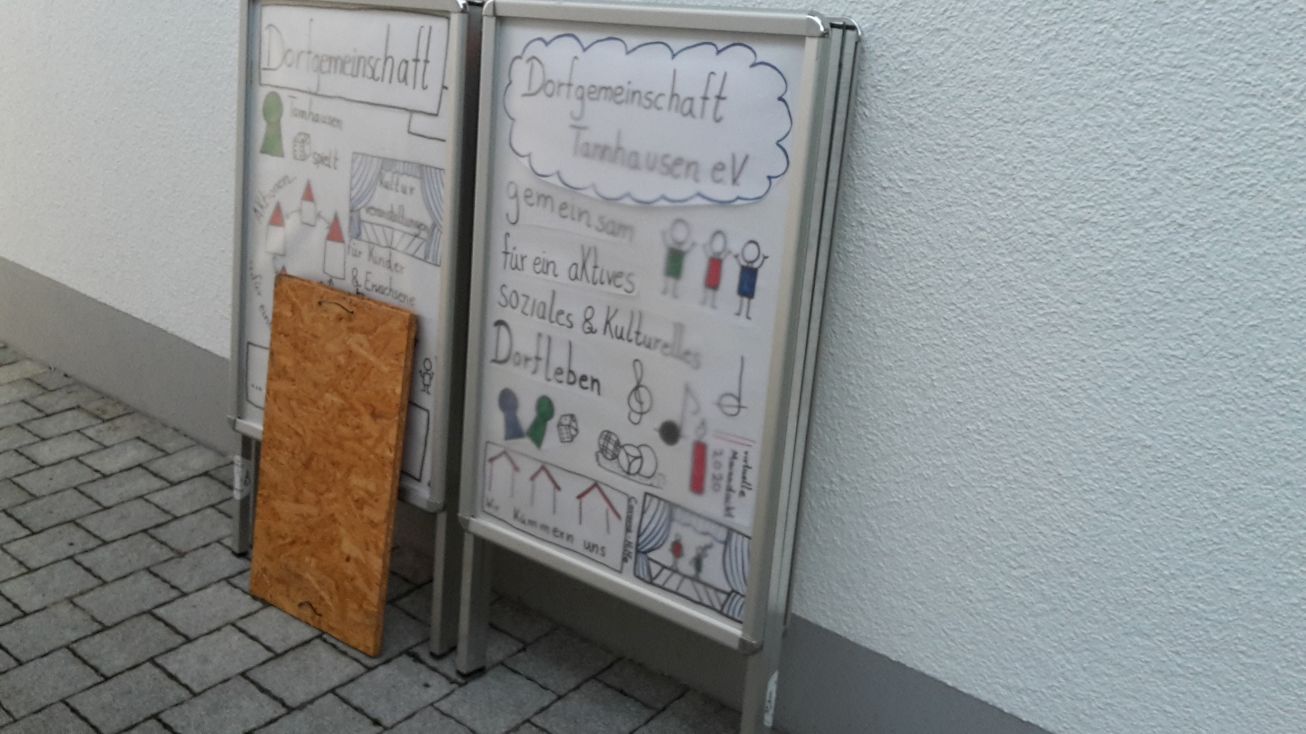 Dorfgemeinschaft
Tannhausen
spielt
Aktionen
Kultur
veranstaltungen
für Kinder
& Erwachsene
Dorfgemeinschaft
Tannhausen e.V
gemeinsam
für ein aktives
soziales & Kulturelles
Dorfleben
virtuelle
Maiandacht
2020
Wir kümmern uns
Corona-Hilfe